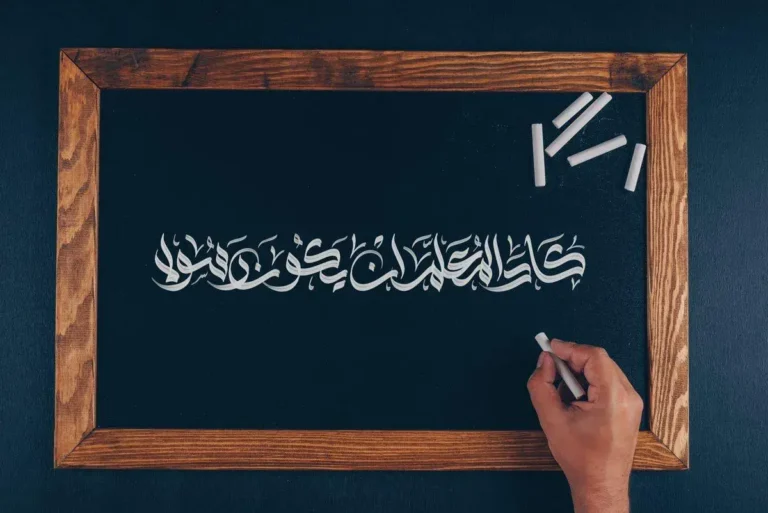 كاد المعلم ان يكون رسولا